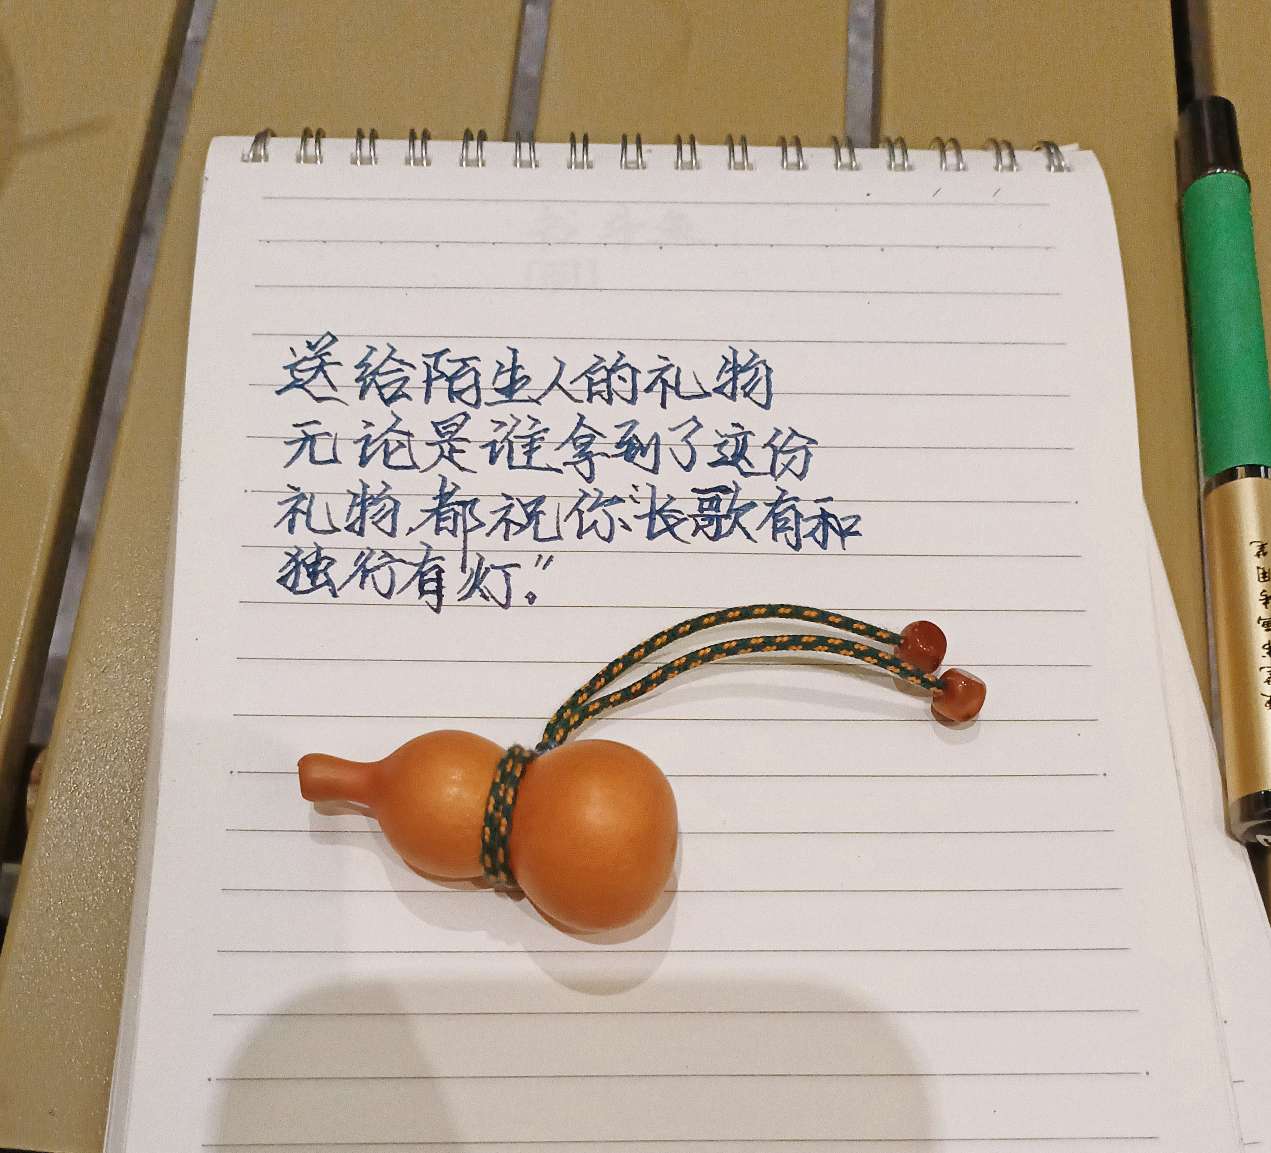 送给陌生人的礼物
无论是谁拿到了这份
礼物,都祝你“长歌有和
独行有灯。”